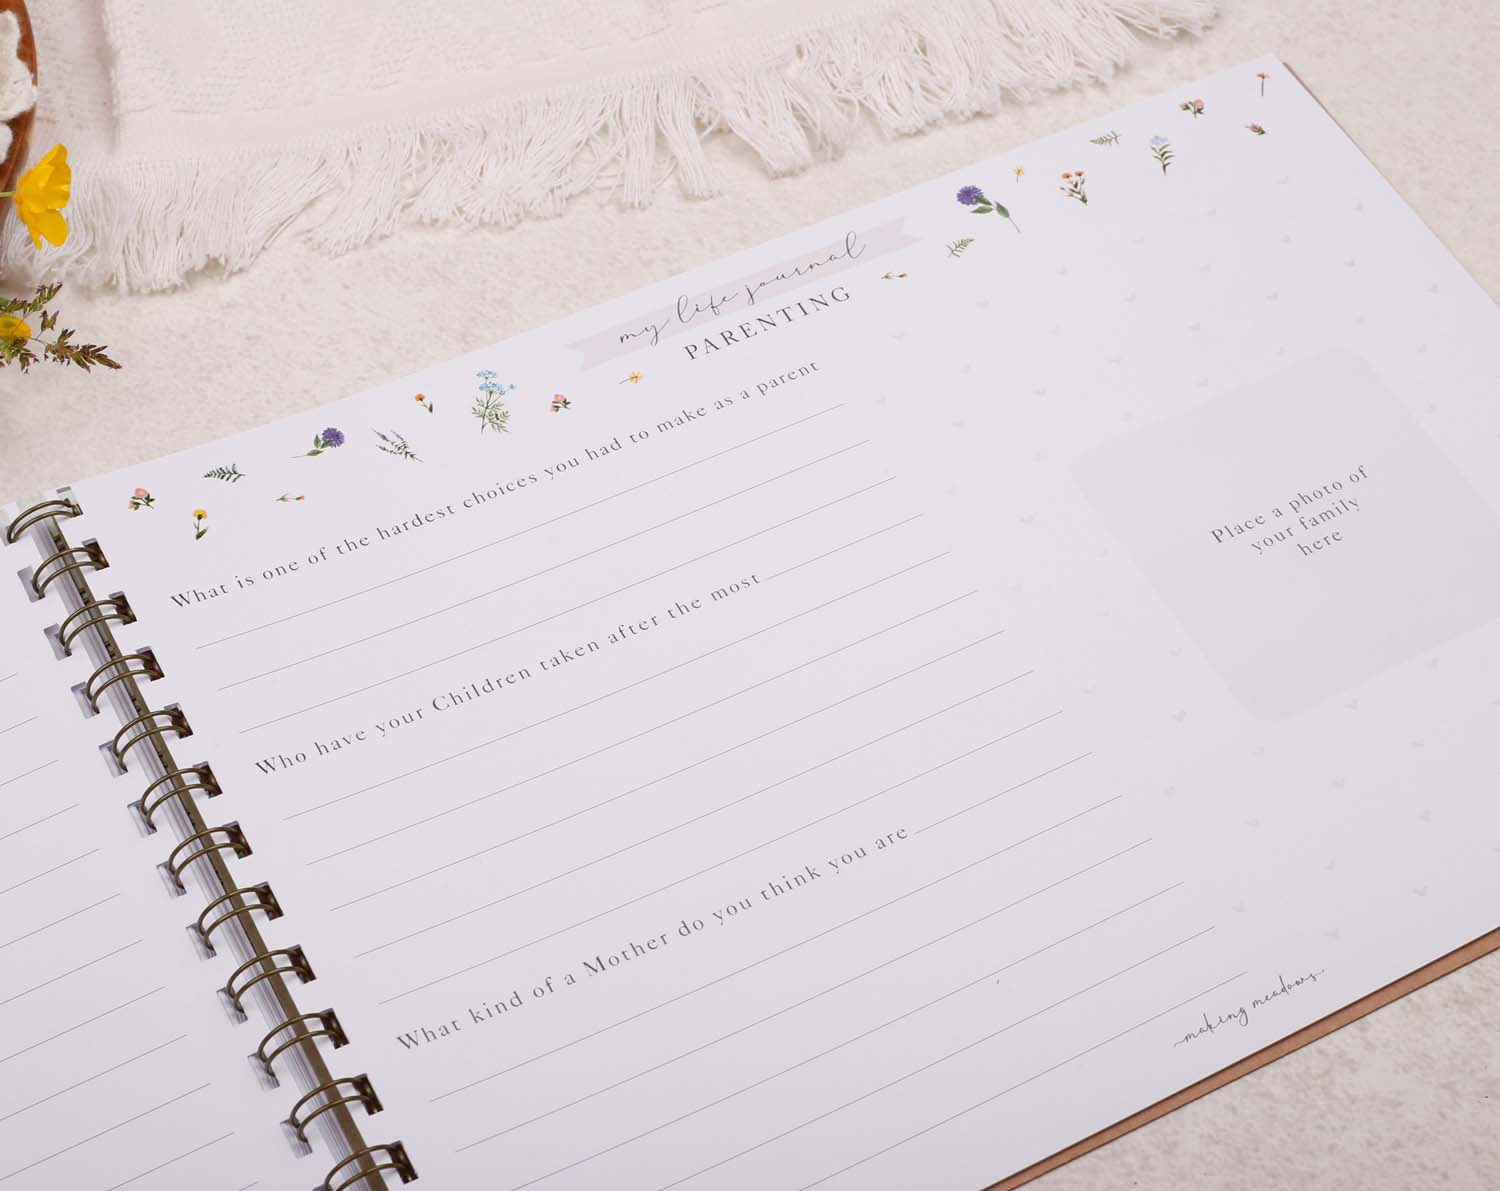 my life journal
PARENTING
What is one of the hardest choices you had to make as a parent
Who have your Children taken after the most
What kind of a Mother do you think you are
Place a photo of
your family
here
making meadows